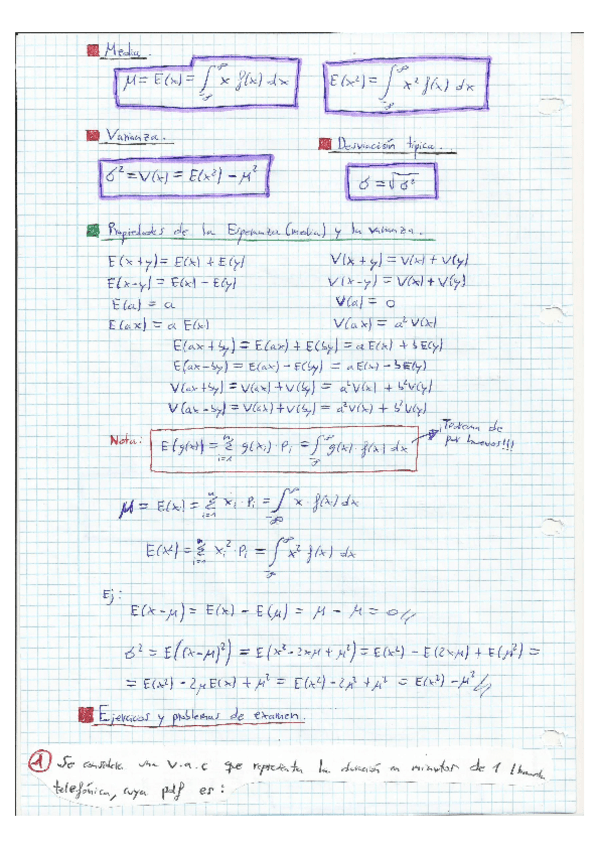 Media.
μ = E(x) = ∫_{-∞}^{∞} x f(x) dx    E(x²) = ∫_{-∞}^{∞} x² f(x) dx
Varianza.    Desviación típica.
σ² = V(x) = E(x²) - μ²    σ = √σ²
Propiedades de la Esperanza (media) y la varianza.
E(x+y) = E(x) + E(y)    V(x+y) = V(x) + V(y)
E(x-y) = E(x) - E(y)    V(x-y) = V(x) + V(y)
E(a) = a    V(a) = 0
E(ax) = a E(x)    V(ax) = a² V(x)
E(ax+by) = E(ax) + E(by) = a E(x) + b E(y)
E(ax-by) = E(ax) - E(by) = a E(x) - b E(y)
V(ax+by) = V(ax) + V(by) = a² V(x) + b² V(y)
V(ax-by) = V(ax) + V(by) = a² V(x) + b² V(y)
Nota: E(g(x)) = Σ_{i=1}^{n} g(xi) · Pi = ∫_{-∞}^{∞} g(x) · f(x) dx    ¡Teorema de
!!!
μ = E(x) = Σ_{i=1}^{n} xi · Pi = ∫_{-∞}^{∞} x · f(x) dx
E(x²) = Σ_{i=1}^{n} xi² · Pi = ∫_{-∞}^{∞} x² f(x) dx
Ej:
E(x-μ) = E(x) - E(μ) = μ - μ = 0//
σ² = E((x-μ)²) = E(x² - 2xμ + μ²) = E(x²) - E(2xμ) + E(μ²) =
= E(x²) - 2μE(x) + μ² = E(x²) - 2μ² + μ² = E(x²) - μ²//
Ejercicios y problemas de examen.
1 Se considera una v.a.c que representa la duración en minutos de 1 llamada
telefónica, cuya pdf es: